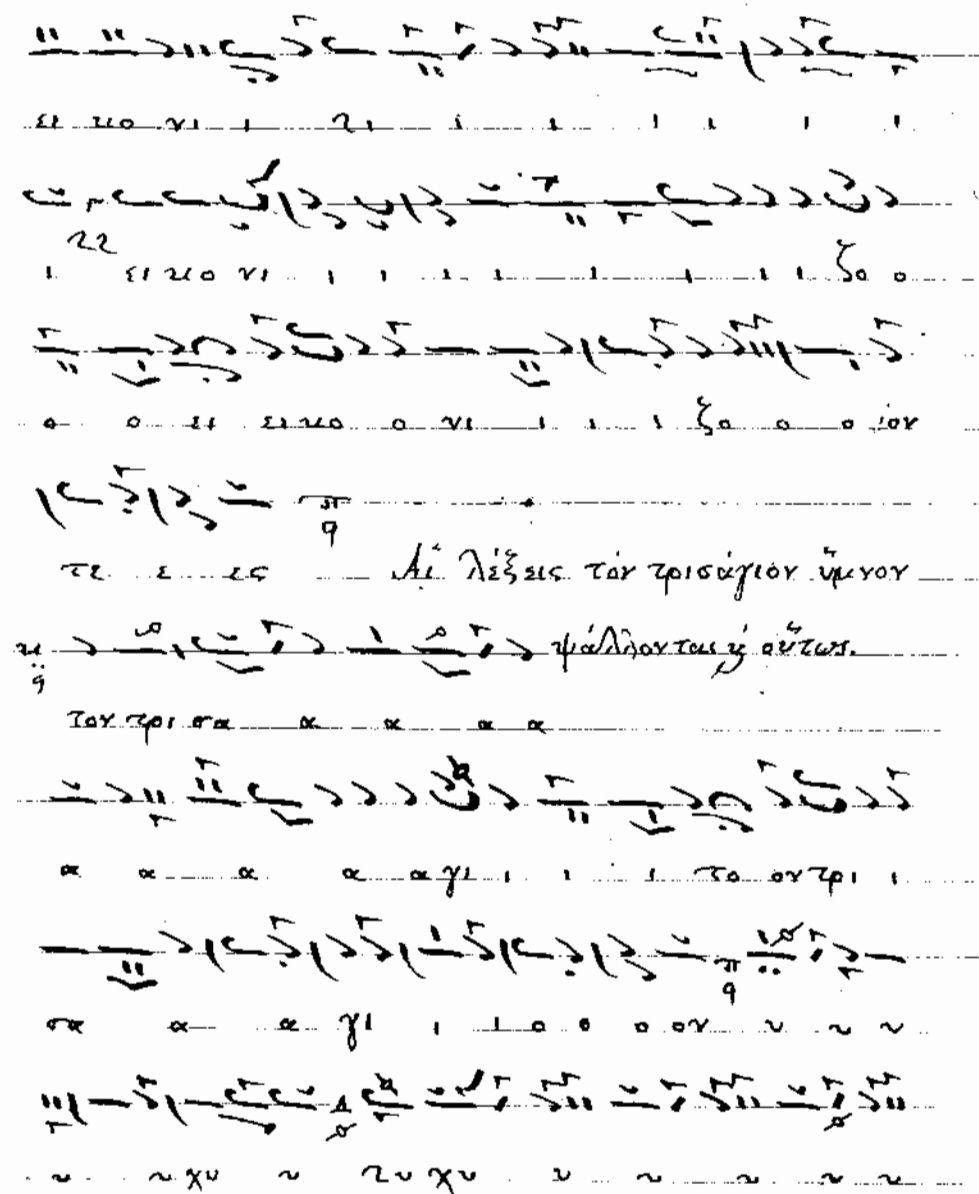 ει κο νι ι τι ι ι ι ι ι ι
ι ει κο νι ι ι ι ι ι ι ι ι ζο ο
ο ο ει εικο ο νι ι ι ι ζο ο ο ιον
τε ε ες Αἱ λέξεις τόν τρισάγιον ὕμνον
ψάλλονται οὕτως.
τον τρι σα α α α α
α α α α α γι ι ι ι το ον τρι ι
σα α α γι ι ι ο ο ο ον υ υ υ
υ υ χυ υ χυ υ υ υ υ